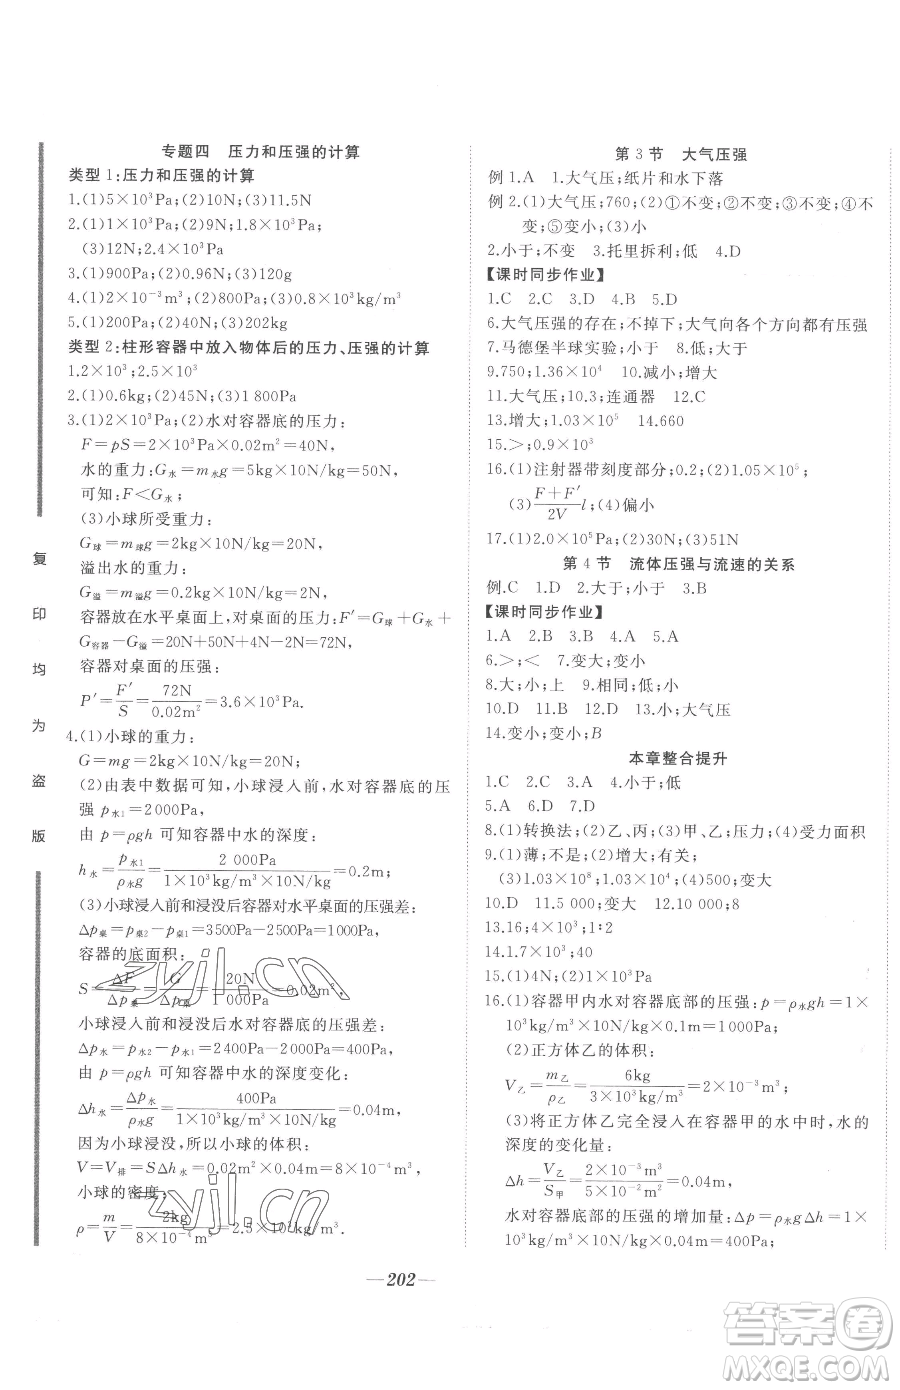 专题四　压力和压强的计算
类型 1:压力和压强的计算
1.(1)5×10³Pa;(2)10N;(3)11.5N
2.(1)1×10³Pa;(2)9N;(3)1.8×10³Pa;
(3)12N;2.4×10³Pa
3.(1)900Pa;(2)0.96N;(3)120g
4.(1)2×10⁻³m³;(2)800Pa;(3)3×10³kg/m³
5.(1)200Pa;(2)40N;(3)202kg
类型 2:柱形容器中放入物体后的压力、压强的计算
1.2×10³;2.5×10³
2.(1)0.6kg;(2)45N;(3)1 800Pa
3.(1)2×10³Pa;(2)水对容器底的压力:
F=pS=2×10³Pa×0.02m²=40N,
水的重力:G水=m水g=5kg×10N/kg=50N,
可知:F<G水;
(3)小球所受重力:
G球=m球g=2kg×10N/kg=20N,
溢出水的重力:
G溢=m溢g=0.2kg×10N/kg=2N,
容器放在水平桌面上,对桌面的压力:F′=G球+G水+
G容器−G溢=20N+50N+4N−2N=72N,
容器对桌面的压强:
P′=F′/S=72N/0.02m²=3.6×10³Pa.
4.(1)小球的重力:
G=mg=2kg×10N/kg=20N,
(2)由表中数据可知,小球浸入前,水对容器底的压
强 p水1=2 000Pa,
由 p=ρgh 可知容器中水的深度:
h水=p水1/ρ水g=2 000Pa/1×10³kg/m³×10N/kg=0.2m;
(3)小球浸入前和浸没后容器对水平桌面的压强差:
Δp桌=p桌2−p桌1=3500Pa−2500Pa=1000Pa,
容器的底面积:
S=ΔF/Δp桌=G/Δp桌=20N/1 000Pa=0.02m²,
小球浸入前和浸没后水对容器底的压强差:
Δp水=p水2−p水1=2400Pa−2000Pa=400Pa,
由 p=ρgh 可知容器中水的深度变化:
Δh水=Δp水/ρ水g=400Pa/1×10³kg/m³×10N/kg=0.04m,
因为小球浸没,所以小球的体积:
V=V排=SΔh水=0.02m²×0.04m=8×10⁻⁴m³,
小球的密度:
ρ=m/V=2kg/8×10⁻⁴m³=2.5×10³kg/m³.
第 3 节　大气压强
例 1.A　1.大气压;纸片和水下落
例 2.(1)大气压;760;(2)①不变;②不变;③不变;④不
变;⑤变小;(3)小
2.小于;不变　3.托里拆利;低　4.D
【课时同步作业】
1.C　2.C　3.D　4.B　5.D
6.大气压强的存在;不掉下;大气向各个方向都有压强
7.马德堡半球实验;小于　8.低;大于
9.750;1.36×10⁴　10.减小;增大
11.大气压;10.3;连通器　12.C
13.增大;1.03×10⁵　14.660
15.>;0.9×10³
16.(1)注射器带刻度部分;0.2;(2)1.05×10⁵;
(3)F+F′/2V l;(4)偏小
17.(1)2.0×10⁵Pa;(2)30N;(3)51N
第 4 节　流体压强与流速的关系
例.C　1.D　2.大于;小于　3.B
【课时同步作业】
1.A　2.B　3.B　4.A　5.A
6.>;<　7.变大;变小
8.大;小;上　9.相同;低;小
10.D　11.B　12.D　13.小;大气压
14.变小;变小;B
本章整合提升
1.C　2.C　3.A　4.小于;低
5.A　6.D　7.D
8.(1)转换法;(2)乙、丙;(3)甲、乙;压力;(4)受力面积
9.(1)薄;不是;(2)增大;有关;
(3)1.03×10⁸;1.03×10⁴;(4)500;变大
10.D　11.5 000;变大　12.10 000;8
13.16;4×10³;1∶2
14.1.7×10³;40
15.(1)4N;(2)1×10³Pa
16.(1)容器甲内水对容器底部的压强:p=ρ水gh=1×
10³kg/m³×10N/kg×0.1m=1000Pa;
(2)正方体乙的体积:
V乙=m乙/ρ乙=6kg/3×10³kg/m³=2×10⁻³m³;
(3)将正方体乙完全浸入在容器甲的水中时,水的
深度的变化量:
Δh=V乙/S甲=2×10⁻³m³/5×10⁻²m²=0.04m,
水对容器底部的压强的增加量:Δp=ρ水gΔh=1×
10³kg/m³×10N/kg×0.04m=400Pa;
复印均为盗版
—202—
zyjl.cn
zyjl.cn
答案圈
MXQE.COM